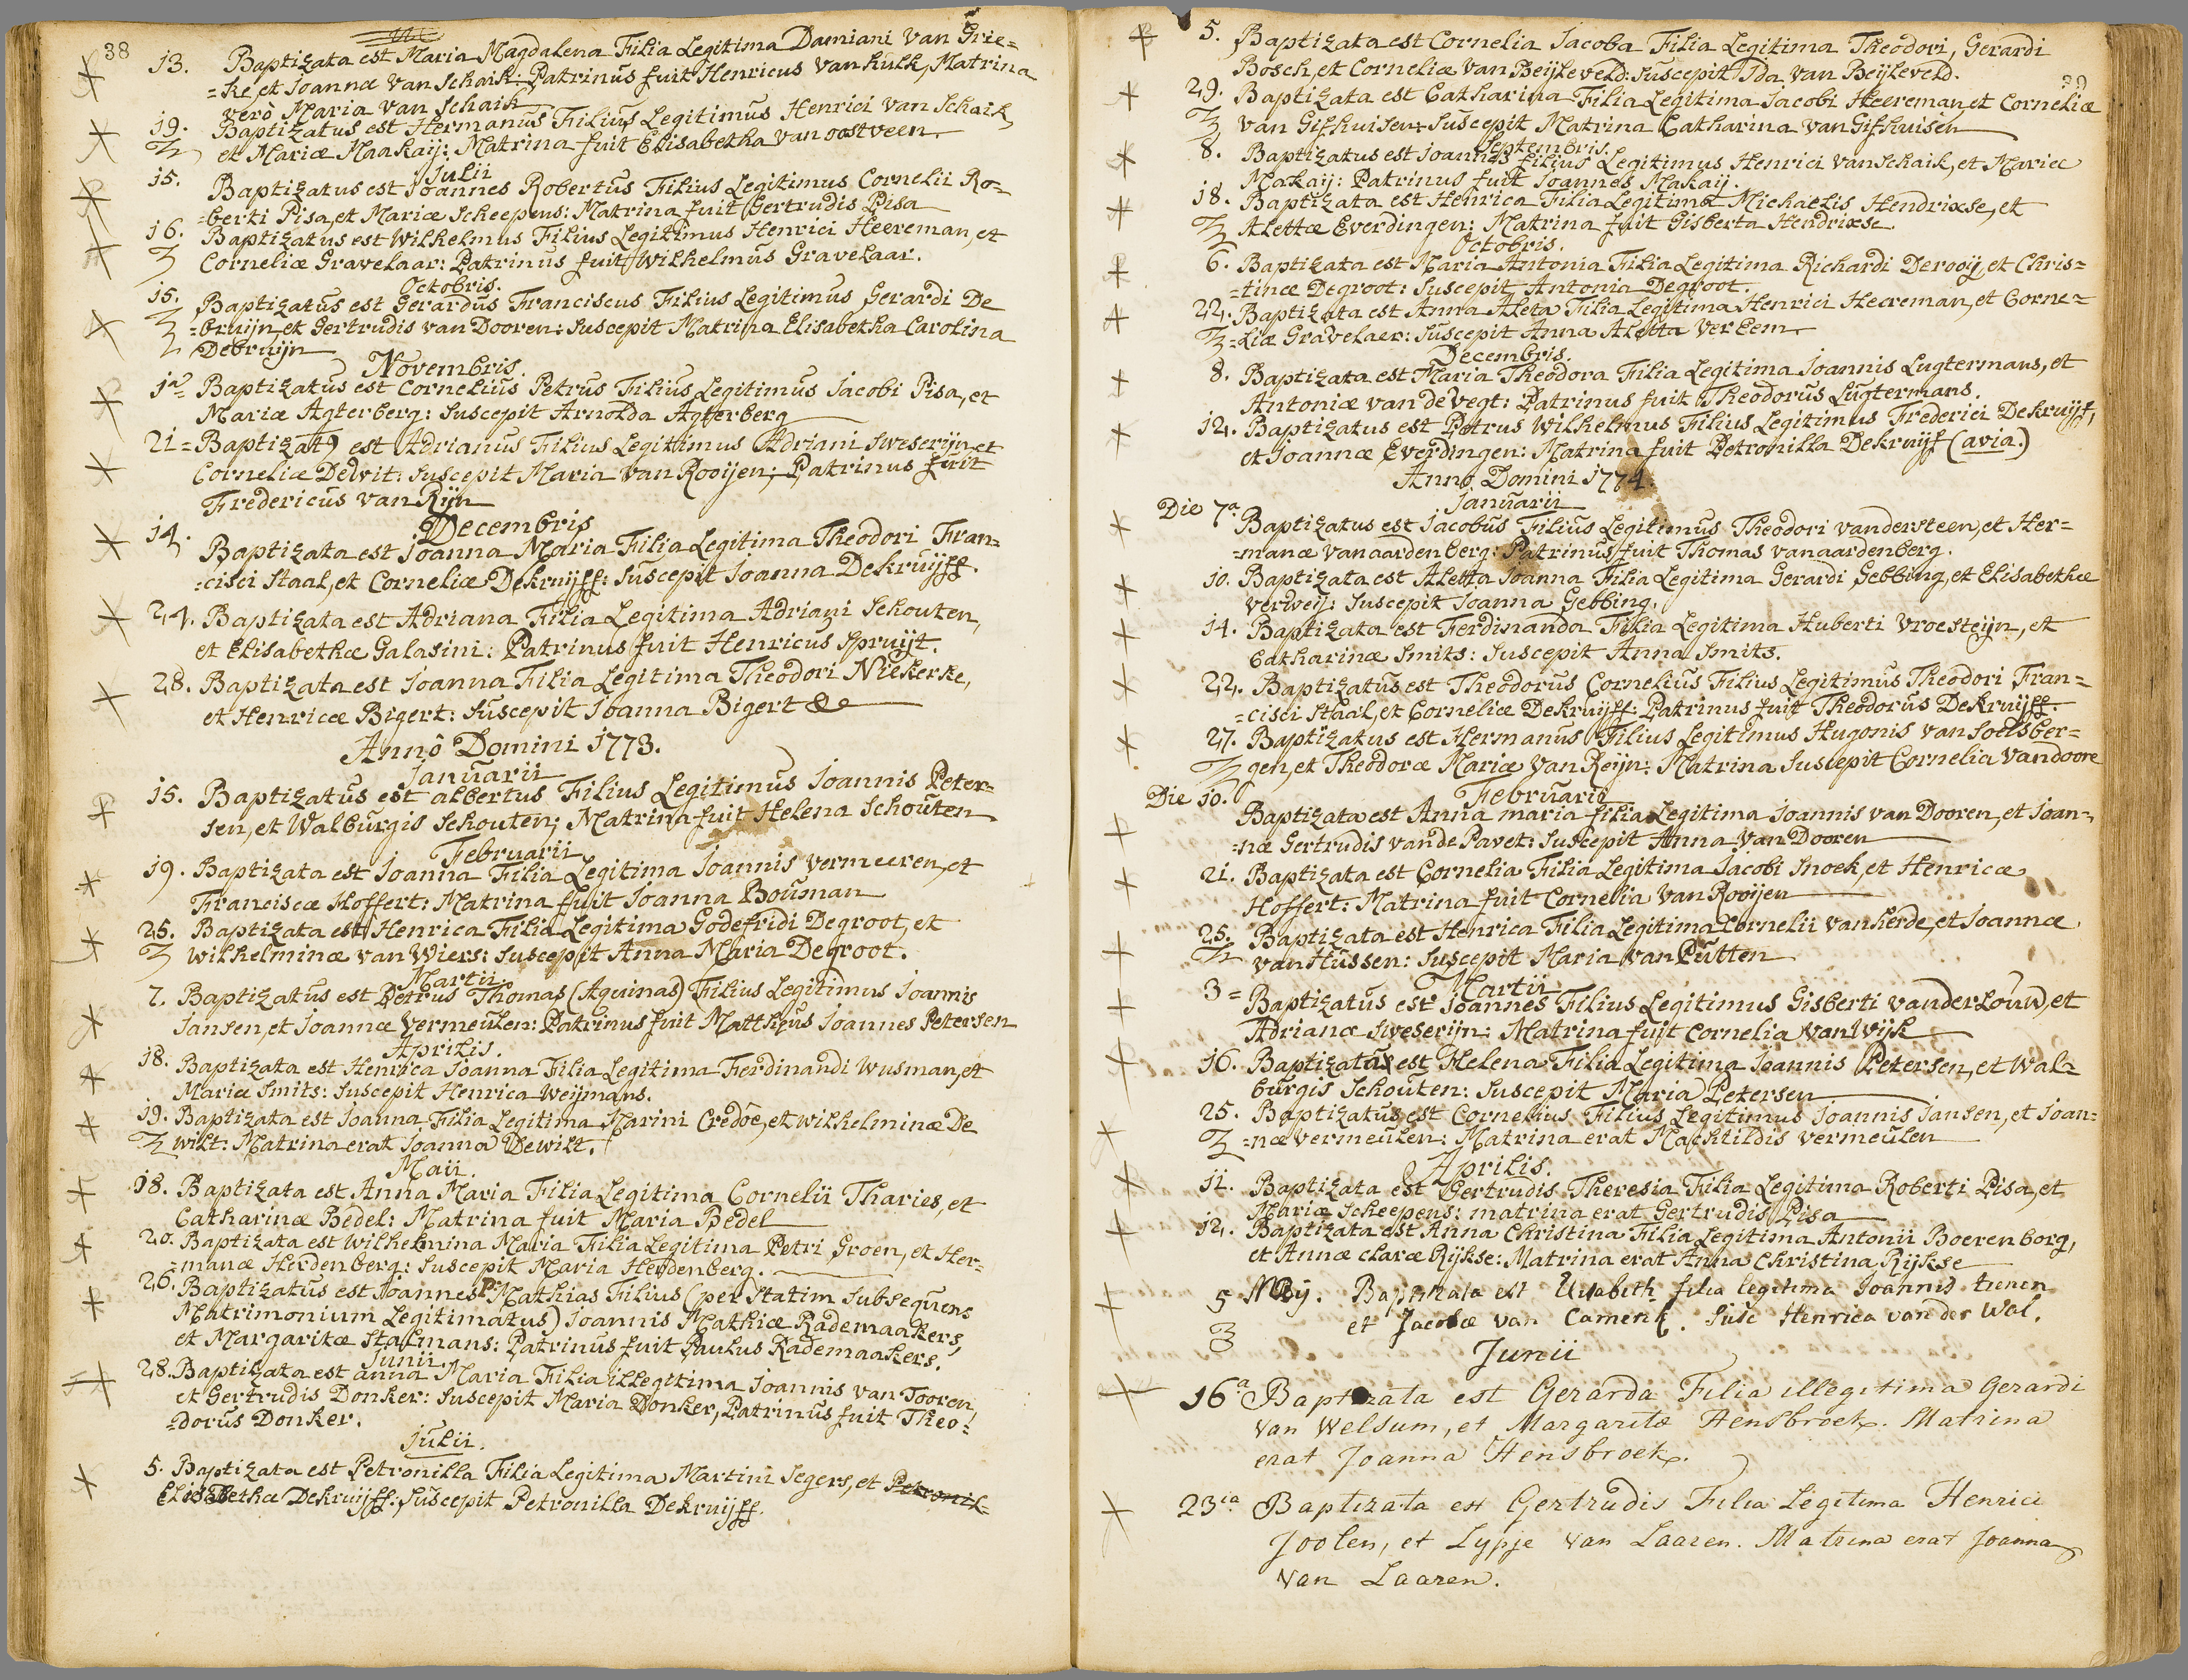 38
13. Baptizata est Maria Magdalena Filia Legitima Damiani Van Grie=
=ke et Joannæ Van Schaik: Patrinus fuit Henricus Van kulk, Matrina
verò Maria Van Schaik
19. Baptizatus est Hermanus Filius Legitimus Henrici Van Schaik
et Mariæ Maakaij: Matrina fuit Elisabetha van oostveen
Julii
15. Baptizatus est Joannes Robertus Filius Legitimus Cornelii Ro=
=berti Pisa, et Mariæ Scheepens: Matrina fuit Gertrudis Pisa
16. Baptizatus est Wilhelmus Filius Legitimus Henrici Heereman, et
Corneliæ Gravelaar: Patrinus fuit Wilhelmus Gravelaar.
Octobris.
15. Baptizatus est Gerardus Franciscus Filius Legitimus Gerardi De
=bruijn et Gertrudis van Dooren: Suscepit Matrina Elisabetha Carolina
Debruijn
Novembris.
1a= Baptizatus est Cornelius Petrus Filius Legitimus Jacobi Pisa, et
Mariæ Agterberg: Suscepit Arnolda Agterberg
21= Baptizat9 est Adrianus Filius Legitimus Adriani Sweserijn et
Corneliæ Dewit: Suscepit Maria Van Rooijen; Patrinus fuit
Fredericus van Rijn
Decembris
14. Baptizata est Joanna Maria Filia Legitima Theodori Fran=
=cisci Staal, et Corneliæ Dekruijff: Suscepit Joanna Dekruijff.
24. Baptizata est Adriana Filia Legitima Adriani Schouten,
et Elisabethæ Galasini: Patrinus fuit Henricus Spruijt.
28. Baptizata est Joanna Filia Legitima Theodori Niekerke,
et Henricæ Bigert: Suscepit Joanna Bigert &c
Annô Domini 1773.
Januarii
15. Baptizatus est albertus Filius Legitimus Joannis Peter=
sen, et Walburgis Schouten; Matrina fuit Helena Schouten
Februarii
19. Baptizata est Joanna Filia Legitima Joannis vermeeren, et
Franciscæ Hoffert: Matrina fuit Joanna Bouman
25. Baptizata est Henrica Filia Legitima Godefridi Degroot, et
Wilhelminæ van Wiers: Suscepit Anna Maria Degroot.
Martii
7. Baptizatus est Petrus Thomas (Aquinas) Filius Legitimus Joannis
Jansen, et Joannæ Vermeulen: Patrinus fuit Mattheus Joannes Petersen
Aprilis.
18. Baptizata est Henrica Joanna Filia Legitima Ferdinandi Wusman, et
Mariæ Smits: Suscepit Henrica Weijmans.
19. Baptizata est Joanna Filia Legitima Marini Credôe, et wilhelminæ De
wilt: Matrina erat Joanna Dewilt.
Maii
18. Baptizata est Anna Maria Filia Legitima Cornelii Tharies, et
Catharinæ Bedel: Matrina fuit Maria Bedel
20. Baptizata est Wilhelmina Maria Filia Legitima Petri Groen, et Her=
=manæ Herdenberg: Suscepit Maria Herdenberg.
26. Baptizatus est Joannes Mathias Filius (per Statim Subsequens
Matrimonium Legitimatus) Joannis Mathiæ Rademaakers,
et Margaritæ Stalmans: Patrinus fuit Paulus Rademaakers.
Junii
28. Baptizata est anna Maria Filia illegitima Joannis van Tooren
et Gertrudis Donker: Suscepit Maria Donker, Patrinus fuit Theo=
=dorus Donker.
Julii.
5. Baptizata est Petronilla Filia Legitima Martini Segers, et Petronil=
Elisabethæ Dekruijff: Suscepit Petronilla Dekruijff.
5. Baptizata est Cornelia Jacoba Filia Legitima Theodori, Gerardi
Bosch, et Corneliæ Van Beijleveld: Suscepit Ida Van Beijleveld.
29. Baptizata est Catharina Filia Legitima Jacobi Heereman, et Corneliæ
van Gifhuisen: Suscepit Matrina Catharina Van Gifhuisen
Septembris.
8. Baptizatus est Joannes filius Legitimus Henrici Van Schaik, et Mariæ
Makaij: Patrinus fuit Joannes Makaij.
18. Baptizata est Henrica Filia Legitima Michaelis Hendrixse, et
Alettæ Everdingen: Matrina fuit Gisberta Hendrixse
Octobris.
6. Baptizata est Maria Antonia Filia Legitima Richardi Derooij, et Chris=
=tinæ Degroot: Suscepit Antonia Degroot.
22. Baptizata est Anna Aleta Filia Legitima Henrici Heereman, et Corne=
=liæ Gravelaer: Suscepit Anna Aletta Ver Eem
Decembris.
8. Baptizata est Maria Theodora Filia Legitima Joannis Lugtermans, et
Antoniæ van de Vegt: Patrinus fuit Theodorus Lugtermans.
12. Baptizatus est Petrus Wilhelmus Filius Legitimus Frederici Dekruijf,
et Joannæ Everdingen: Matrina fuit Petronilla Dekruijf (avia.)
Anno Domini 1774.
Januarii
Die 7a Baptizatus est Jacobus Filius Legitimus Theodori vandersteen, et Her=
=manæ vanaardenberg: Patrinus fuit Thomas vanaardenberg.
10. Baptizata est Aletta Joanna Filia Legitima Gerardi Gebbing, et Elisabethæ
Verweij: Suscepit Joanna Gebbing.
14. Baptizata est Ferdinanda Filia Legitima Huberti Vroesteijn, et
Catharinæ Smits: Suscepit Anna Smits.
22. Baptizatus est Theodorus Cornelius Filius Legitimus Theodori Fran=
=cisci Staal, et Corneliæ Dekruijff: Patrinus fuit Theodorus Dekruijff.
27. Baptizatus est Hermanus Filius Legitimus Hugonis van Soelsber=
gen, et Theodoræ Mariæ Van Reijn: Matrina Suscepit Cornelia Vandoore
Februarii
Die 10. Baptizata est Anna maria filia Legitima Joannis van Dooren, et Joan=
=næ Gertrudis vande Pavet: Suscepit Anna Van Dooren
21. Baptizata est Cornelia Filia Legitima Jacobi Snoek, et Henricæ
Hoffert: Matrina fuit Cornelia Van Rooijen
25. Baptizata est Henrica Filia Legitima Cornelii Vanherde, et Joannæ
Van Hussen: Suscepit Maria Van Putten
Martii
3= Baptizatus est Joannes Filius Legitimus Gisberti vander Louw, et
Adrianæ Sweserijn: Matrina fuit Cornelia Van Wijk
16. Baptizata est Helena Filia Legitima Joannis Petersen, et Wal=
burgis Schouten: Suscepit Maria Petersen
25. Baptizatus est Cornelius Filius Legitimus Joannis Jansen, et Joan=
=næ vermeulen: Matrina erat Machtildis vermeulen
Aprilis.
11. Baptizata est Gertrudis Theresia Filia Legitima Roberti Pisa, et
Mariæ Scheepens: matrina erat Gertrudis Pisa
12. Baptizata est Anna Christina Filia Legitima Antonii Boerenborg,
et Annæ claræ Rijkse: Matrina erat Anna Christina Rijkse
5 Mey. Baptizata est Elisabeth filia legitima Joannis trenen
et Jacobæ van Camenk. Susc Henrica van der Wal.
Junii
16a Baptizata est Gerarda Filia illegitima Gerardi
Van Welsum, et Margaritæ Hensbroek. Matrina
erat Joanna Hensbroek.
23ia Baptizata est Gertrudis Filia Legitima Henrici
Joolen, et Lypje van Laaren. Matrina erat Joanna
Van Laaren.